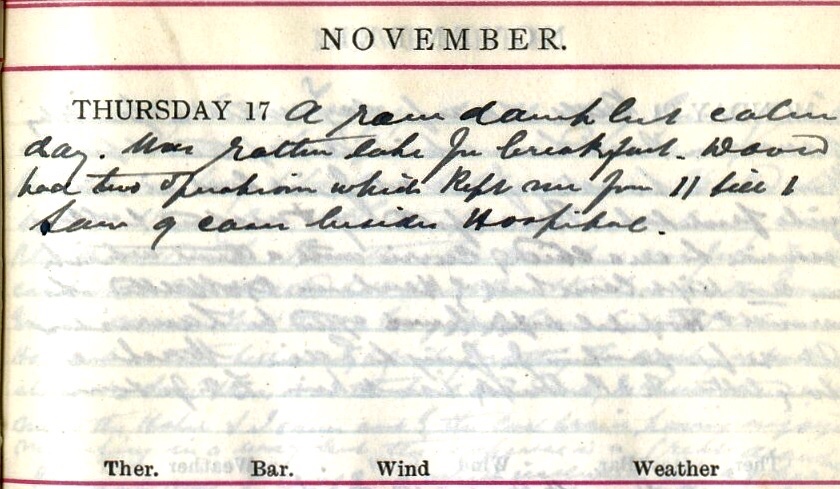 NOVEMBER.
THURSDAY 17 A raw damp but calm
day. Was rather late for breakfast. David
had two operations which kept me from 11 till 1
Saw 9 cases besides Hospital.
Ther. Bar. Wind Weather